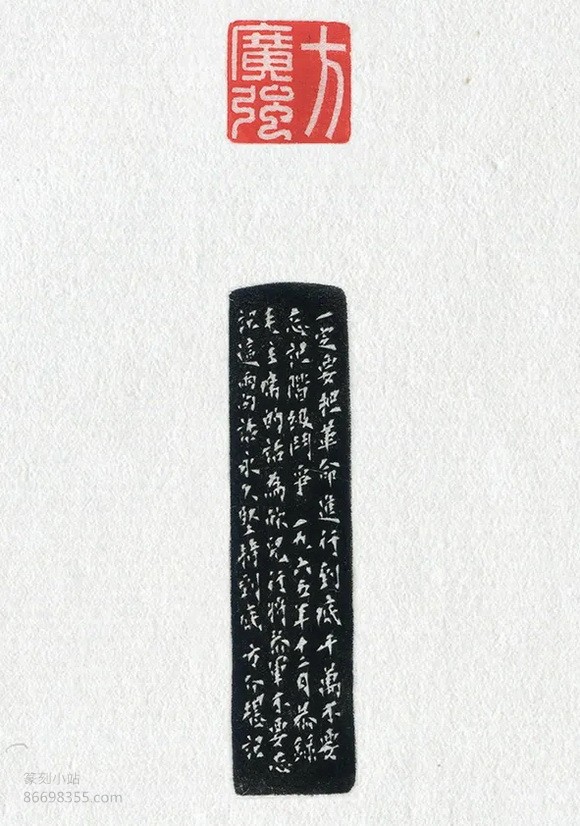 方
廣强
一定要把革命進行到底千萬不要
忘記階級鬥爭 一九六五年十二月恭錄
毛主席的話為兒行將參軍不要忘
記這兩句話永久堅持到底 方介堪記
篆刻小站
86698355.com